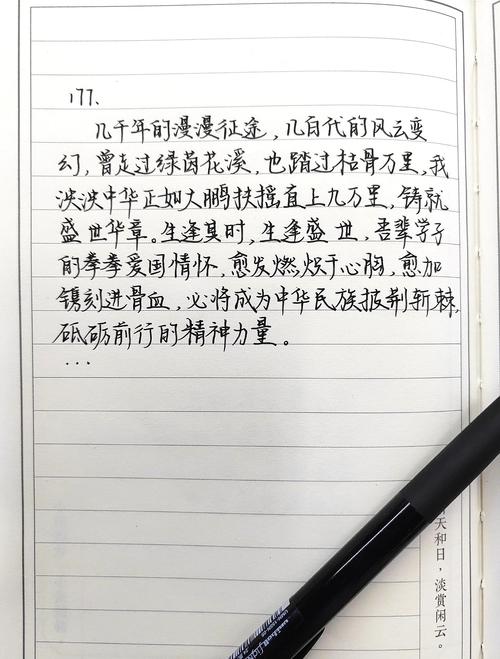 177、
几千年的漫漫征途，几百代的风云变
幻，曾走过绿茵花溪，也踏过枯骨万里，我
泱泱中华正如大鹏扶摇直上九万里，铸就
盛世华章。生逢其时，生逢盛世，吾辈学子
的拳拳爱国情怀，愈发燃炽于心胸，愈加
镌刻进骨血，必将成为中华民族披荆斩棘，
砥砺前行的精神力量。
...
天和日，淡赏闲云。